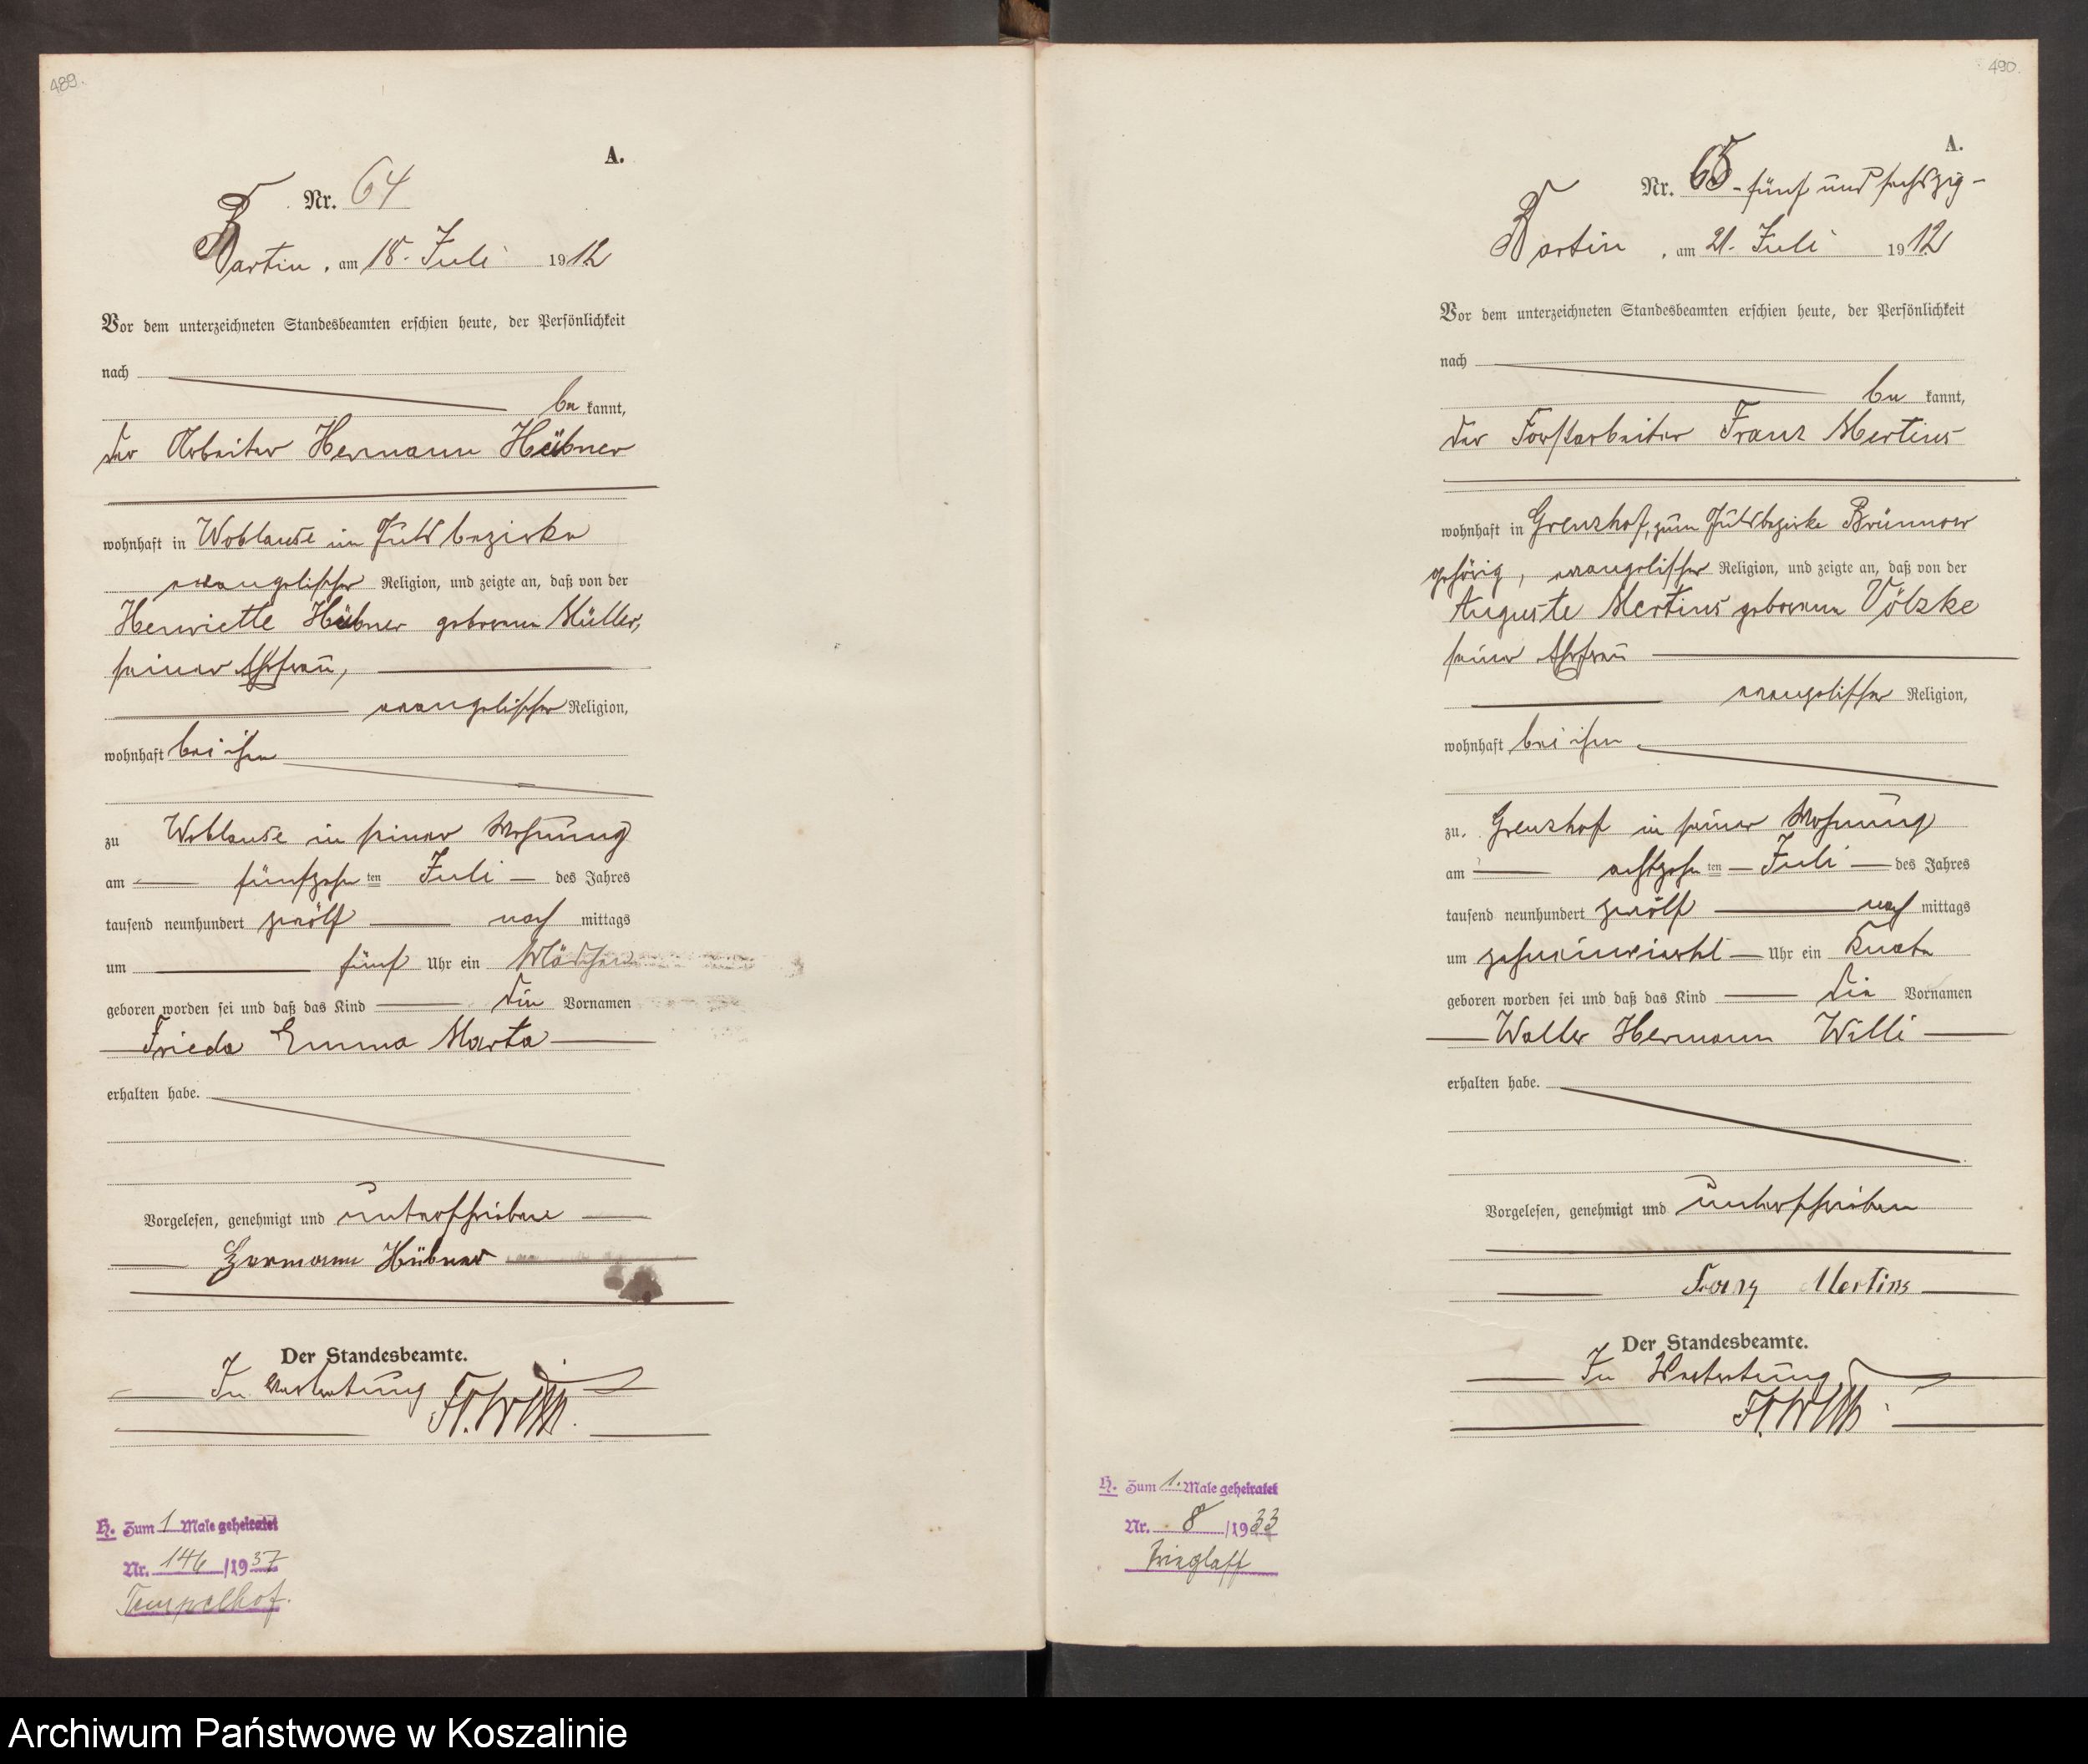 489.
A.
Nr. 64
Bartin, am 18. Juli 1912
Vor dem unterzeichneten Standesbeamten erschien heute, der Persönlichkeit
nach
be kannt,
der Arbeiter Hermann Hübner
wohnhaft in Woblanse im Gutsbezirke
evangelischer Religion, und zeigte an, daß von der
Henriette Hübner geborenen Müller,
seiner Ehefrau,
evangelischer Religion,
wohnhaft bei ihm
zu Woblanse in seiner Wohnung
am fünfzehn ten Juli des Jahres
tausend neunhundert zwölf nach mittags
um fünf Uhr ein Mädchen
geboren worden sei und daß das Kind die Vornamen
Frieda Emma Marta
erhalten habe.
Vorgelesen, genehmigt und unterschrieben
Hermann Hübner
Der Standesbeamte.
In Vertretung
H. Zum 1 Male geheiratet
Nr. 146/1937
Tempelhof.
490.
A.
Nr. 65 - fünf und sechszig -
Bartin, am 21. Juli 1912
Vor dem unterzeichneten Standesbeamten erschien heute, der Persönlichkeit
nach
be kannt,
der Forstarbeiter Franz Mertins
wohnhaft in Grenzhof, zum Gutsbezirke Brünnow
gehörig, evangelischer Religion, und zeigte an, daß von der
Auguste Mertins geborenen Völzke
seiner Ehefrau
evangelischer Religion,
wohnhaft bei ihm
zu Grenzhof in seiner Wohnung
am achtzehn ten Juli des Jahres
tausend neunhundert zwölf nach mittags
um zehneinviertel Uhr ein Knabe
geboren worden sei und daß das Kind die Vornamen
Walter Hermann Willi
erhalten habe.
Vorgelesen, genehmigt und unterschrieben
Franz Mertins
Der Standesbeamte.
In Vertretung
H. Zum 1. Male geheiratet
Nr. 8/1933
Trieglaff
Archiwum Państwowe w Koszalinie